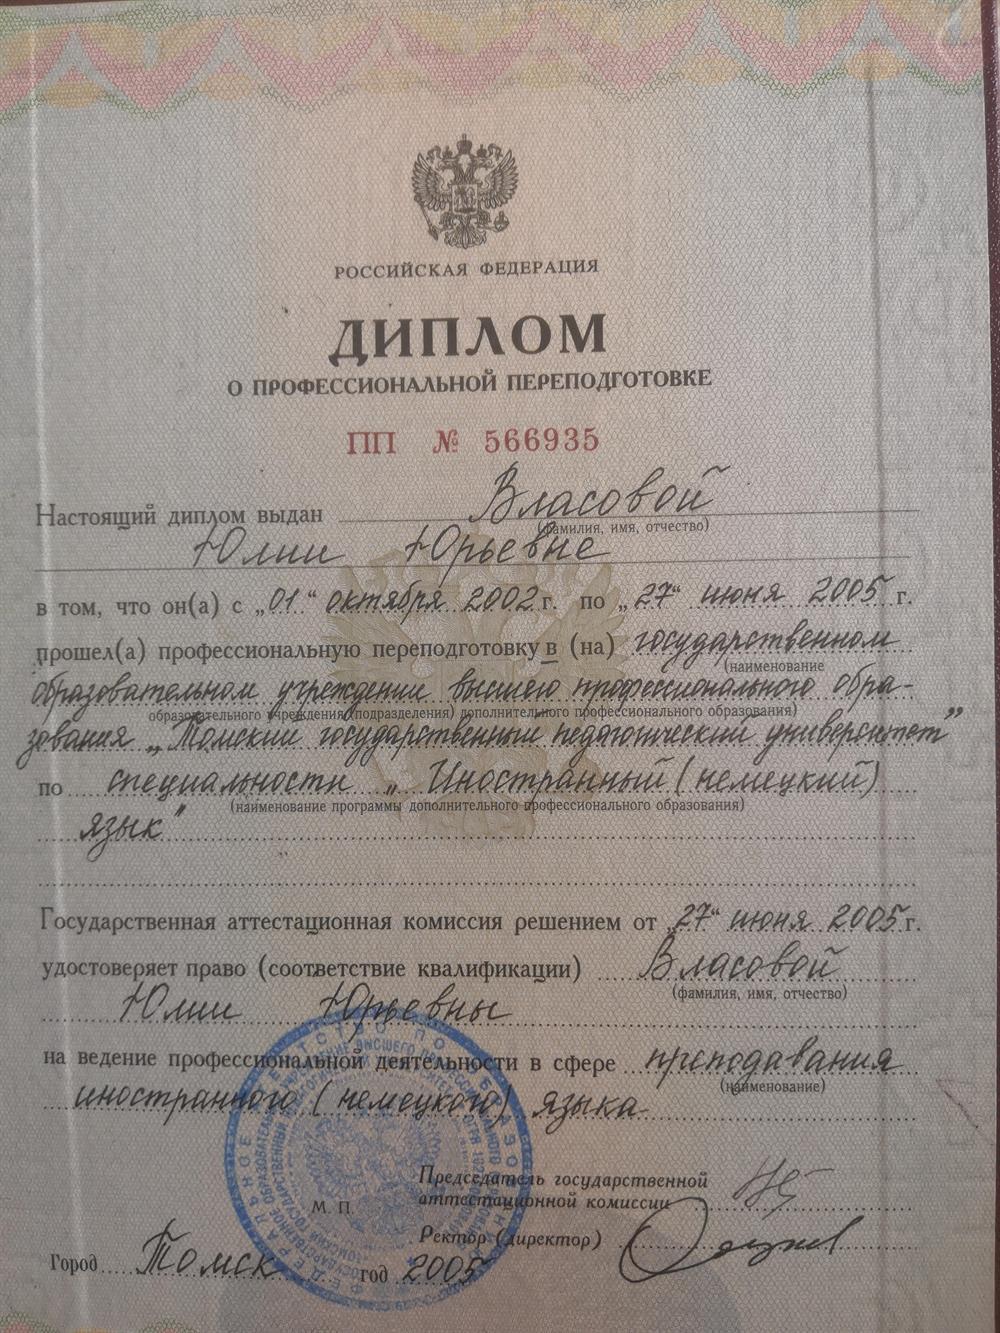 РОССИЙСКАЯ ФЕДЕРАЦИЯ
ДИПЛОМ
О ПРОФЕССИОНАЛЬНОЙ ПЕРЕПОДГОТОВКЕ
ПП № 566935
Настоящий диплом выдан Власовой
(фамилия, имя, отчество)
Юлии Юрьевне
в том, что он(а) с „01“ октября 2002 г. по „27“ июня 2005 г.
прошел(а) профессиональную переподготовку в (на) государственном
(наименование
образовательном учреждении высшего профессионального обра-
образовательного учреждения (подразделения) дополнительного профессионального образования)
зования „Томский государственный педагогический университет”
по специальности „Иностранный (немецкий)
(наименование программы дополнительного профессионального образования)
язык”
Государственная аттестационная комиссия решением от „27“ июня 2005 г.
удостоверяет право (соответствие квалификации) Власовой
(фамилия, имя, отчество)
Юлии Юрьевны
на ведение профессиональной деятельности в сфере преподавания
(наименование)
иностранного (немецкого) языка
Председатель государственной
аттестационной комиссии
М. П.
Ректор (директор)
Город Томск год 2005